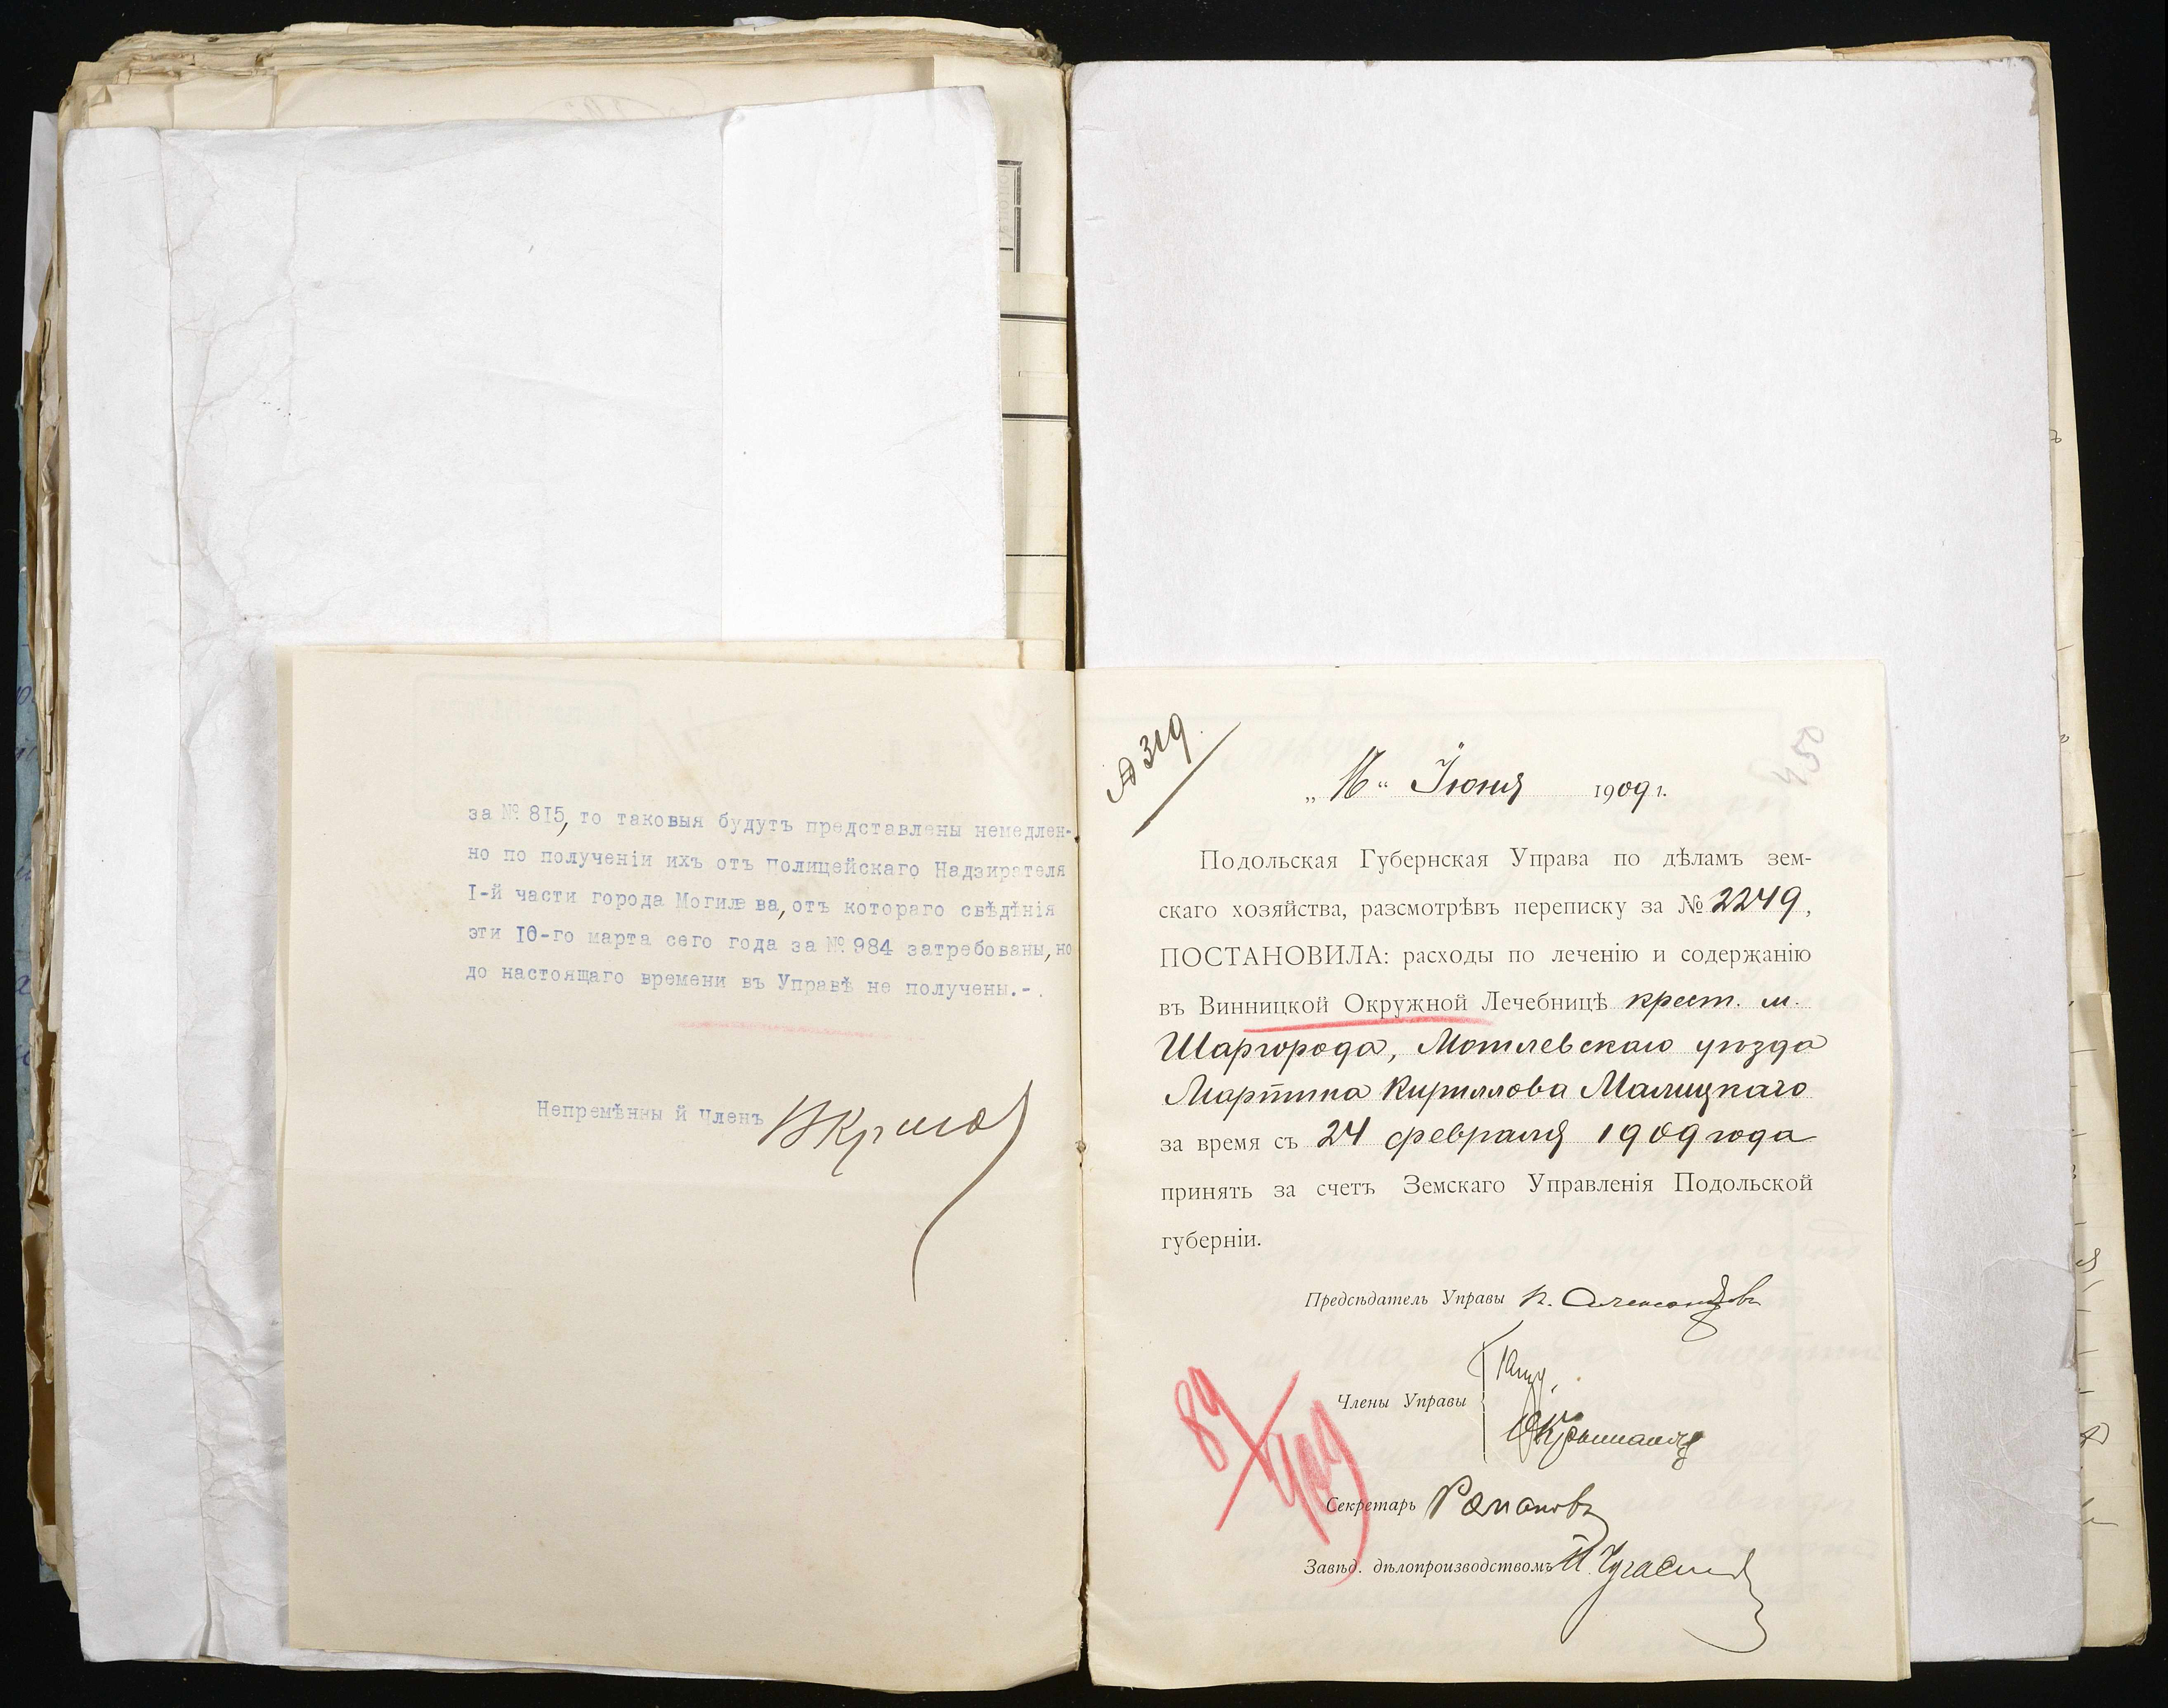 за № 815, то таковыя будутъ представлены немедлен-
но по полученіи ихъ отъ Полицейскаго Надзирателя
I-й части города Могилева, отъ котораго свѣдѣнія
эти 10-го марта сего года за № 984 затребованы, но
до настоящаго времени въ Управѣ не получены.-.
Непремѣнный Членъ
№ 319
450
„16“ Іюня 1909 г.
Подольская Губернская Управа по дѣламъ зем-
скаго хозяйства, разсмотрѣвъ переписку за № 2249,
ПОСТАНОВИЛА: расходы по леченію и содержанію
въ Винницкой Окружной Лечебницѣ крест. м.
Шаргорода, Могилевскаго уѣзда
Мартина Кириллова Малицкаго
за время съ 24 февраля 1909 года
принять за счетъ Земскаго Управленія Подольской
губерніи.
Предсѣдатель Управы К. Александровъ
Члены Управы
89/909
Секретарь Романовъ
Завѣд. дѣлопроизводствомъ